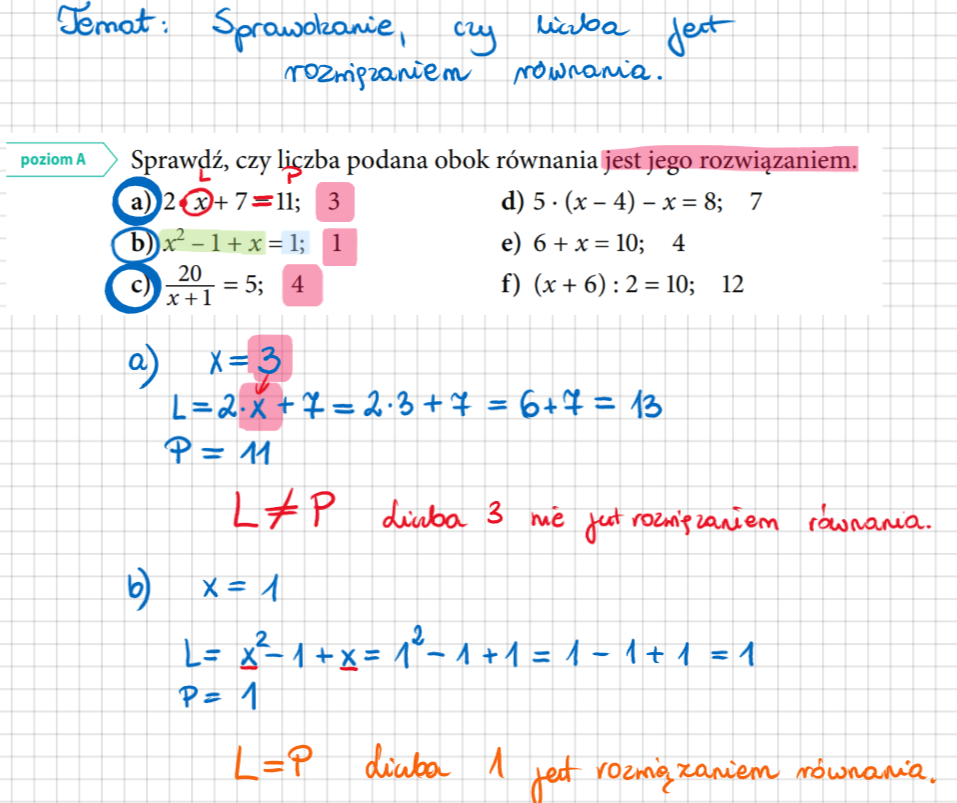 Temat: Sprawdzanie, czy liczba jest
rozwiązaniem równania.
poziom A
Sprawdź, czy liczba podana obok równania jest jego rozwiązaniem.
L P
a) 2 · x + 7 = 11; 3
b) x² − 1 + x = 1; 1
c) 20/(x + 1) = 5; 4
d) 5 · (x − 4) − x = 8; 7
e) 6 + x = 10; 4
f) (x + 6) : 2 = 10; 12
a) x = 3
L = 2 · x + 7 = 2 · 3 + 7 = 6 + 7 = 13
P = 11
L ≠ P liczba 3 nie jest rozwiązaniem równania.
b) x = 1
L = x² − 1 + x = 1² − 1 + 1 = 1 − 1 + 1 = 1
P = 1
L = P liczba 1 jest rozwiązaniem równania.